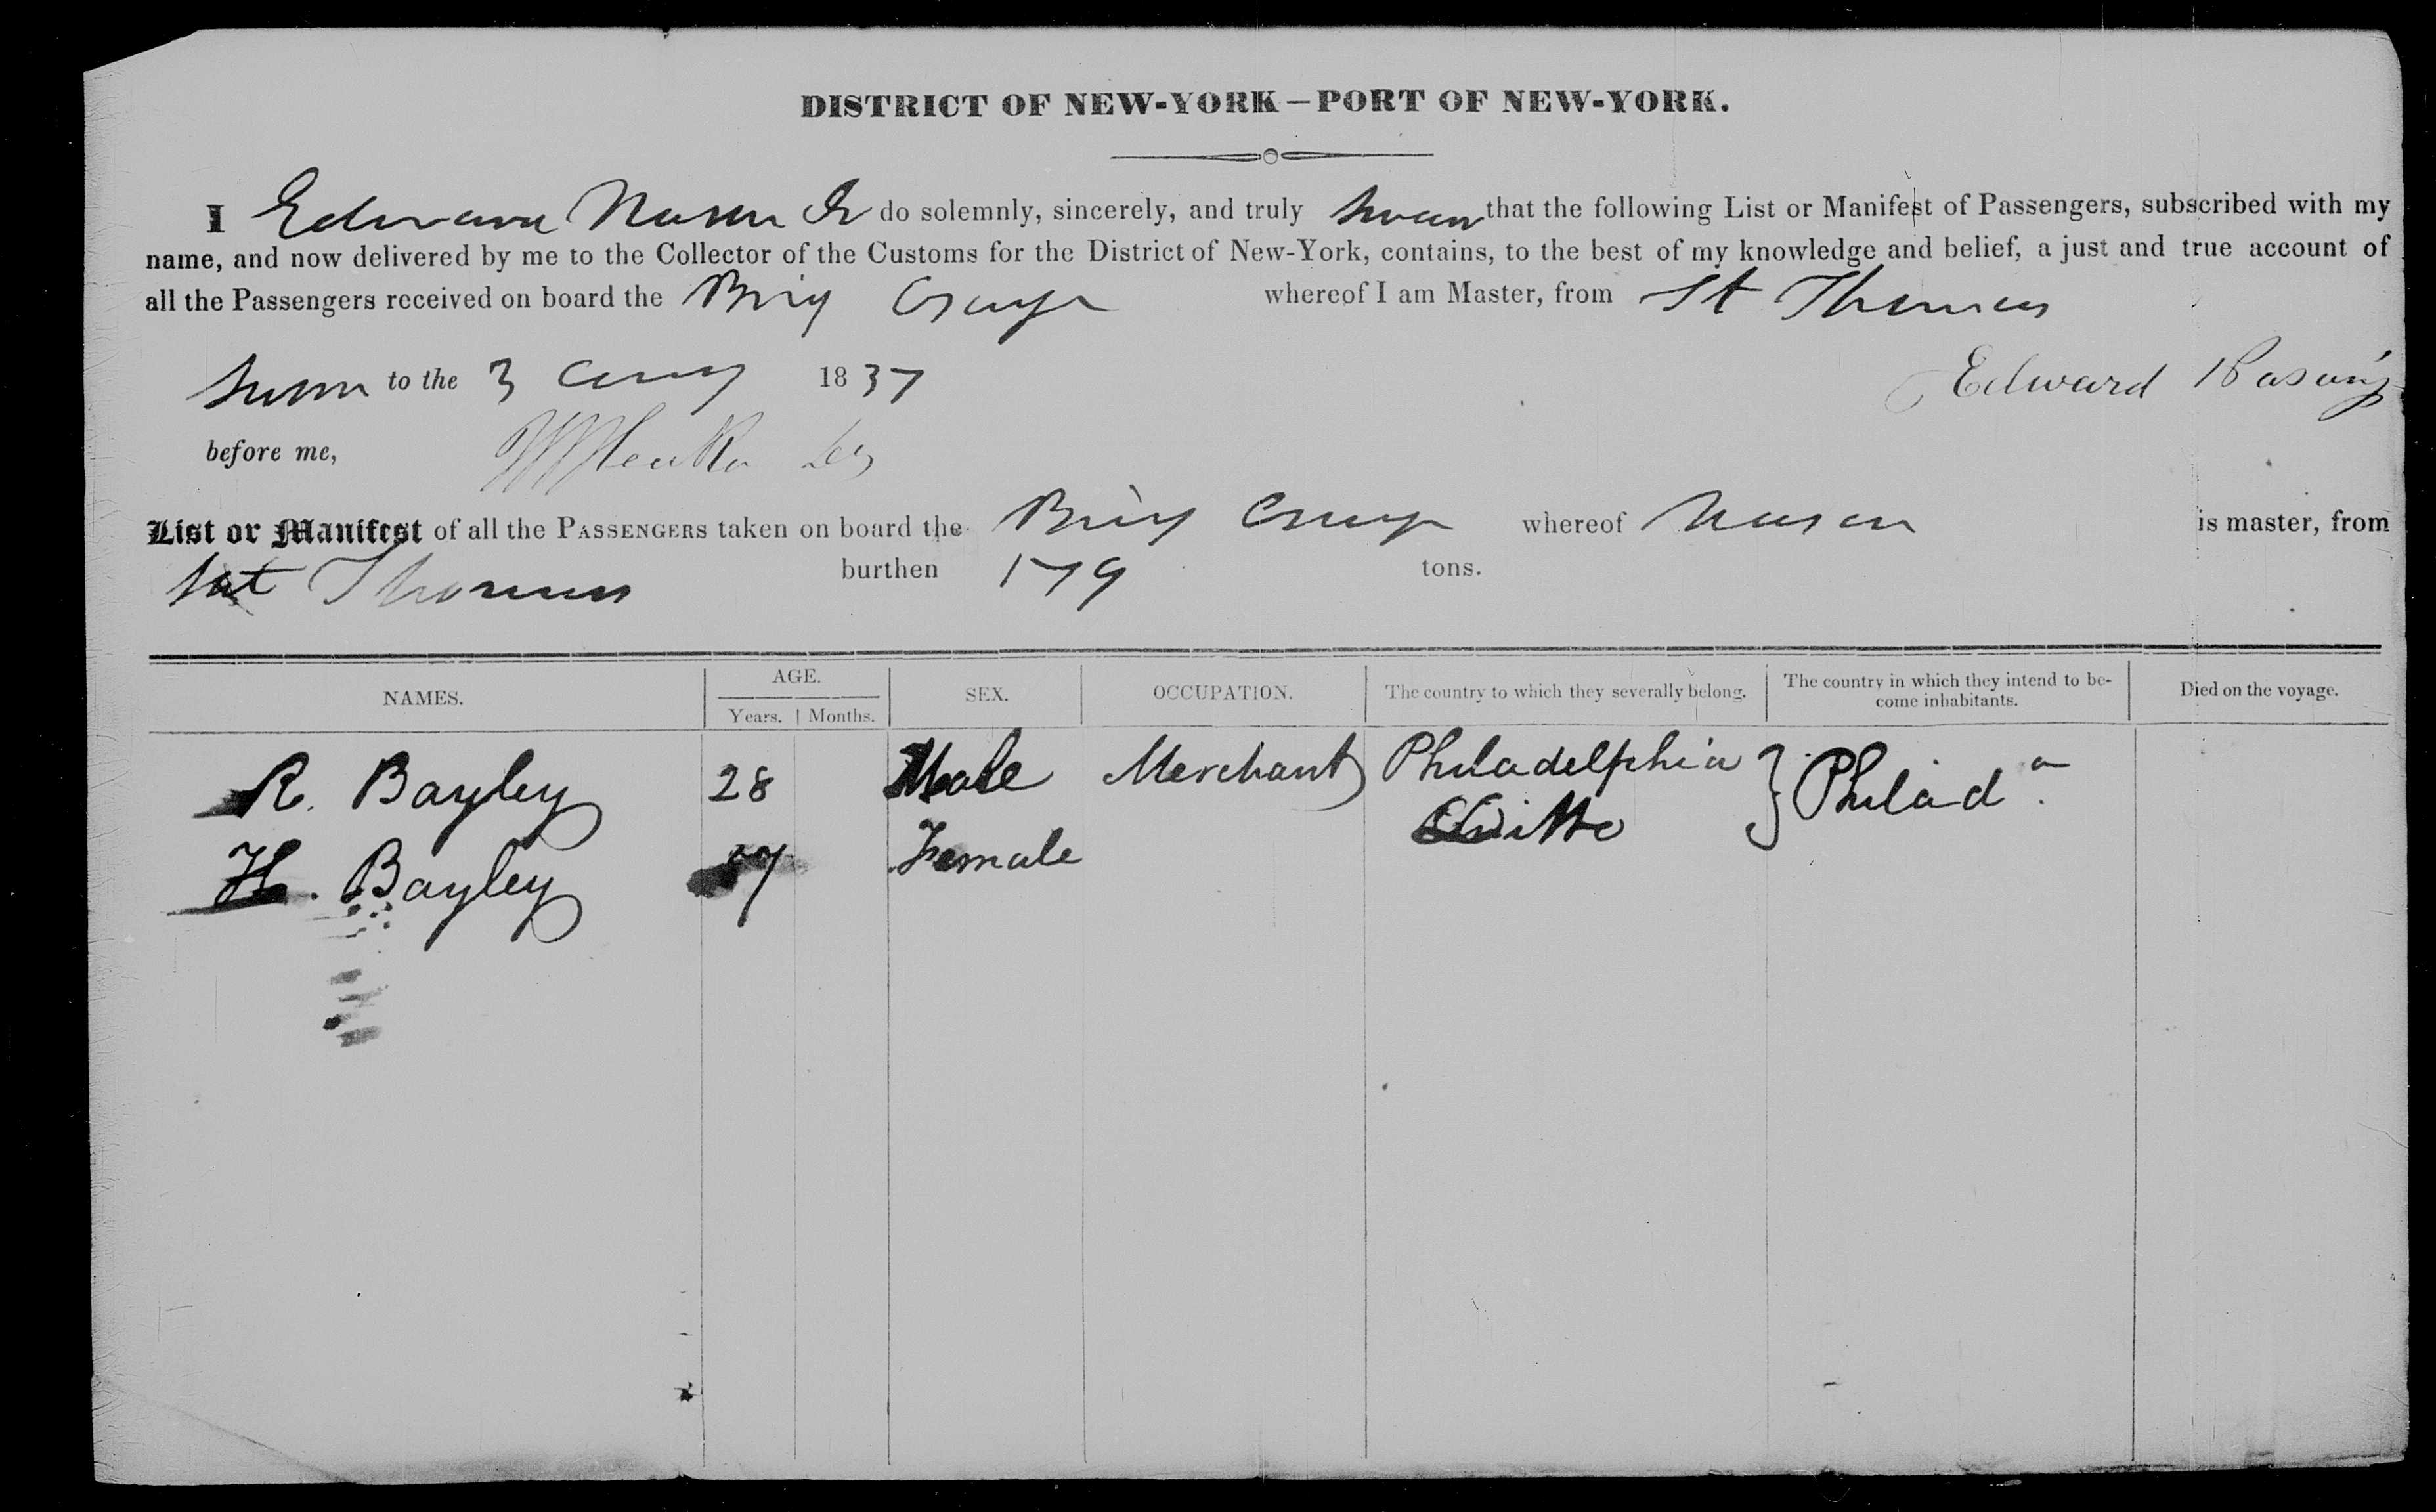 DISTRICT OF NEW-YORK – PORT OF NEW-YORK.
I Edward Nason Jr do solemnly, sincerely, and truly swear that the following List or Manifest of Passengers, subscribed with my
name, and now delivered by me to the Collector of the Customs for the District of New-York, contains, to the best of my knowledge and belief, a just and true account of
all the Passengers received on board the Brig whereof I am Master, from St Thomas
Sworn to the 3 Aug 1837
Edward
before me,
List or Manifest of all the PASSENGERS taken on board the Brig whereof Nason is master, from
St Thomas burthen 179 tons.
NAMES. AGE. Years. Months. SEX. OCCUPATION. The country to which they severally belong. The country in which they intend to be-
come inhabitants. Died on the voyage.
R. Bayley 28 Male Merchant Philadelphia } Philad.a
H. Bayley Female Ditto